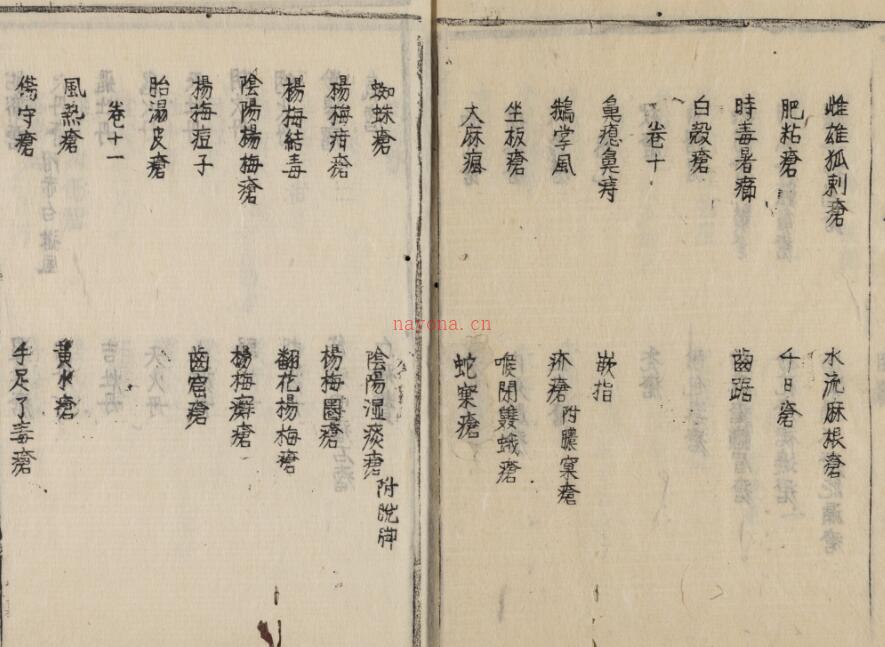 雌雄狐刺瘡
水流麻根瘡
肥粘瘡
千日瘡
時毒暑癤
齒踞
白殼瘡
卷十
鼻瘜鼻痔
嵌指
鵝掌風
疥瘡 附膿窠瘡
坐板瘡
喉閉雙蛾瘡
大麻瘋
蛇窠瘡
蜘蛛瘡
陰陽湿痰瘡 附脫腳
楊梅疳瘡
楊梅圈瘡
楊梅結毒
翻花楊梅瘡
陰陽楊梅瘡
楊梅癬瘡
楊梅痘子
齒窟瘡
胎溻皮瘡
卷十一
風热瘡
黃水瘡
傷守瘡
手足了毒瘡
nayona.cn